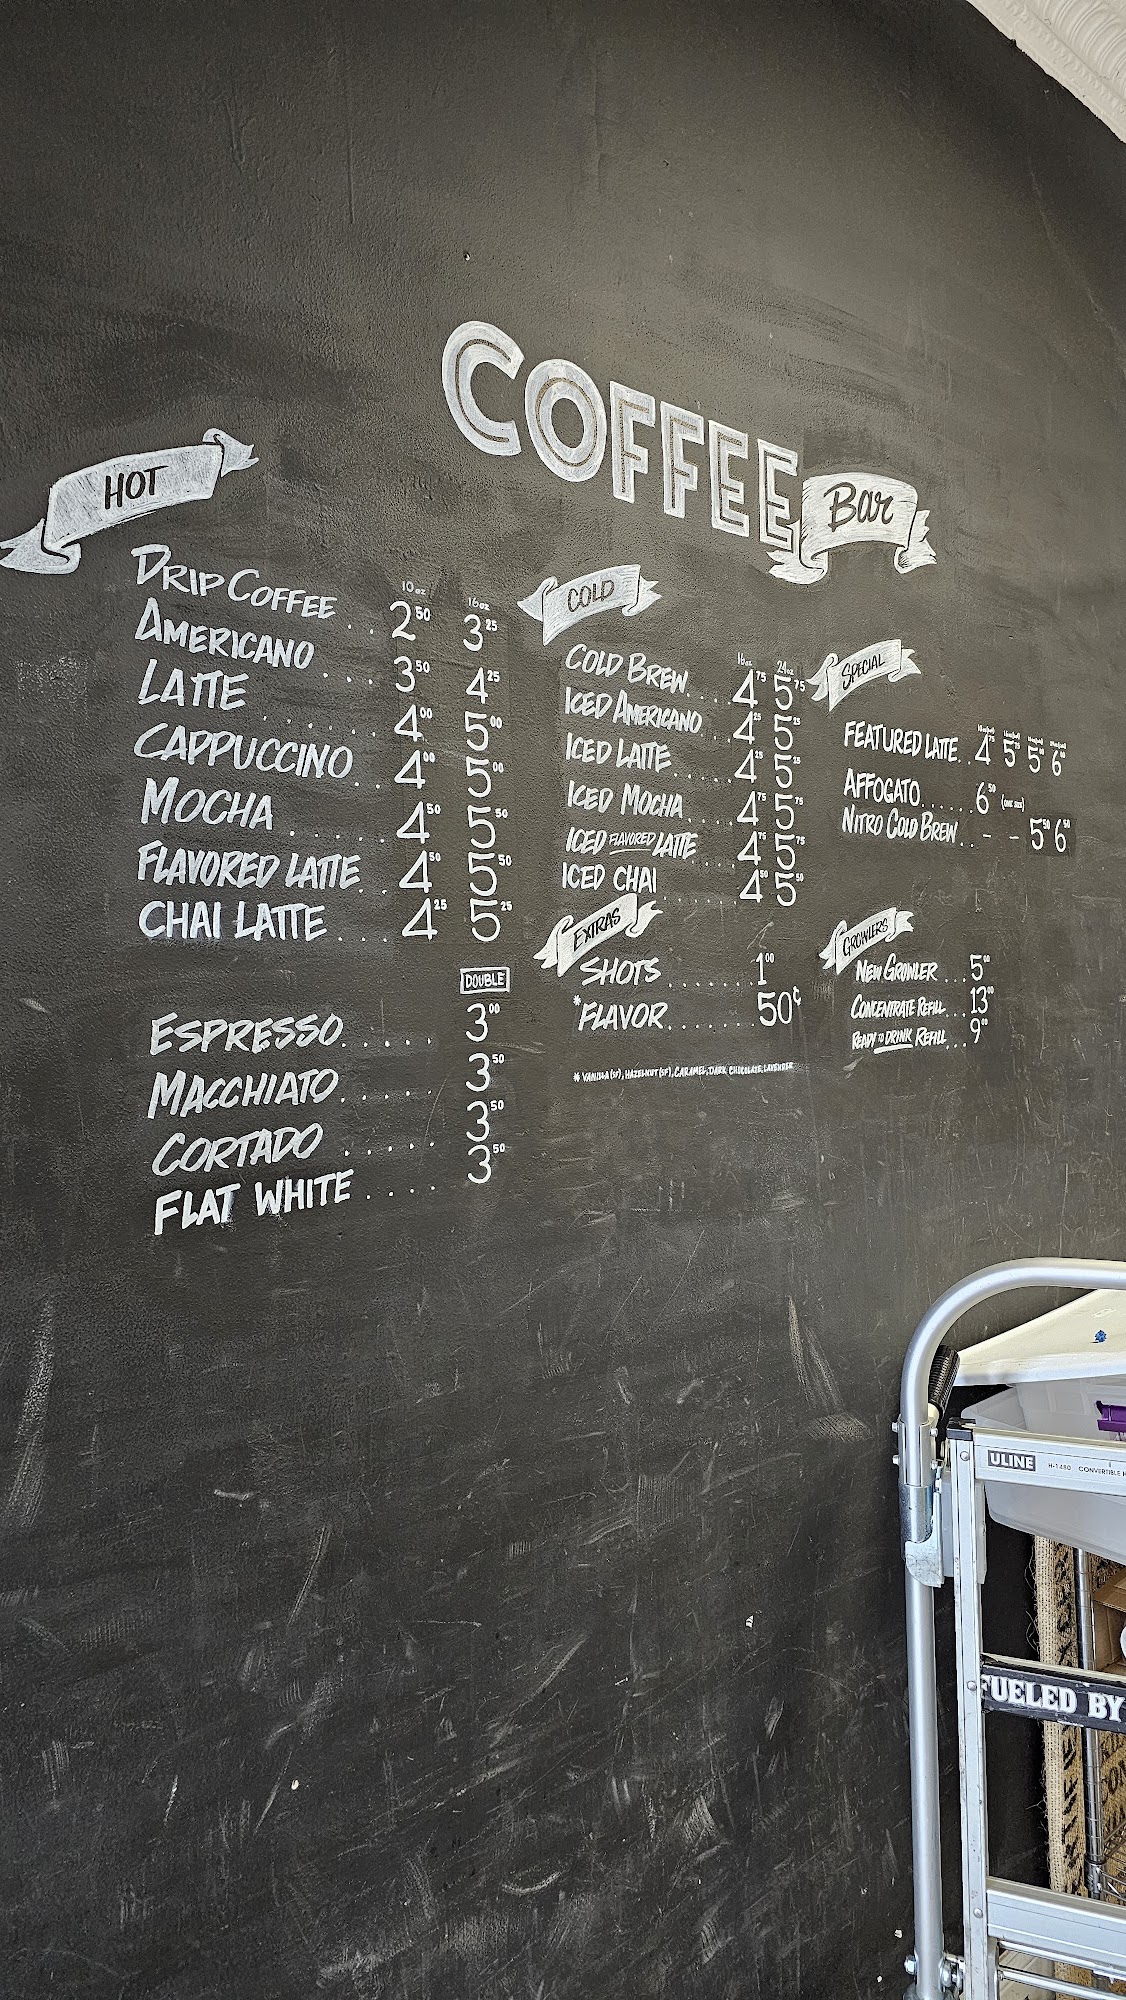 COFFEE Bar
HOT
10oz 16oz
DRIP COFFEE . . 2 50 3 25
AMERICANO . . . 3 50 4 25
LATTE . . . . . . 4 00 5 00
CAPPUCCINO . . 4 00 5 00
MOCHA . . . . . 4 50 5 50
FLAVORED LATTE . . 4 50 5 50
CHAI LATTE . . . . 4 25 5 25
DOUBLE
ESPRESSO . . . . . 3 00
MACCHIATO . . . . . 3 50
CORTADO . . . . . 3 50
FLAT WHITE . . . . 3 50
COLD
16oz 24oz
COLD BREW . . . 4 75 5 75
ICED AMERICANO . . 4 25 5 25
ICED LATTE . . . . . 4 25 5 25
ICED MOCHA . . . . 4 75 5 75
ICED FLAVORED LATTE . . . 4 75 5 75
ICED CHAI . . . . . . 4 50 5 50
EXTRAS
SHOTS . . . . . . . 1 00
*FLAVOR . . . . . . . 50¢
* VANILLA (SF), HAZELNUT (SF), CARAMEL, DARK CHOCOLATE, LAVENDER
SPECIAL
FEATURED LATTE . . 4 75 5 75 5 50 6
AFFOGATO . . . . . . 6 50 (ONE SIZE)
NITRO COLD BREW . . - - 5 50 6 50
GROWLERS
NEW GROWLER . . . 5 00
CONCENTRATE REFILL . . . 13 00
READY TO DRINK REFILL . . . 9 00
ULINE H-1480 CONVERTIBLE H
FUELED BY